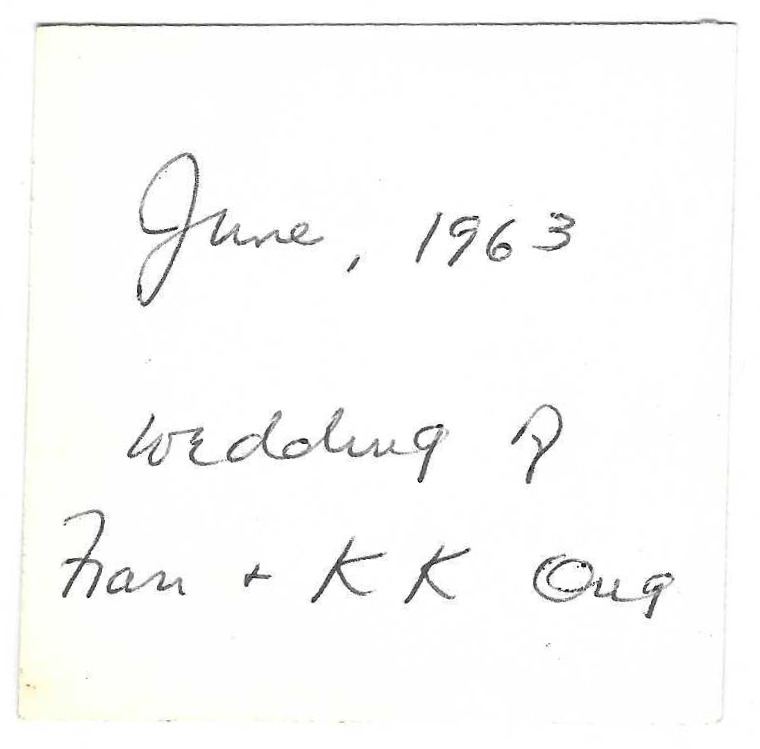 June, 1963
Wedding of
Fran + KK Ong